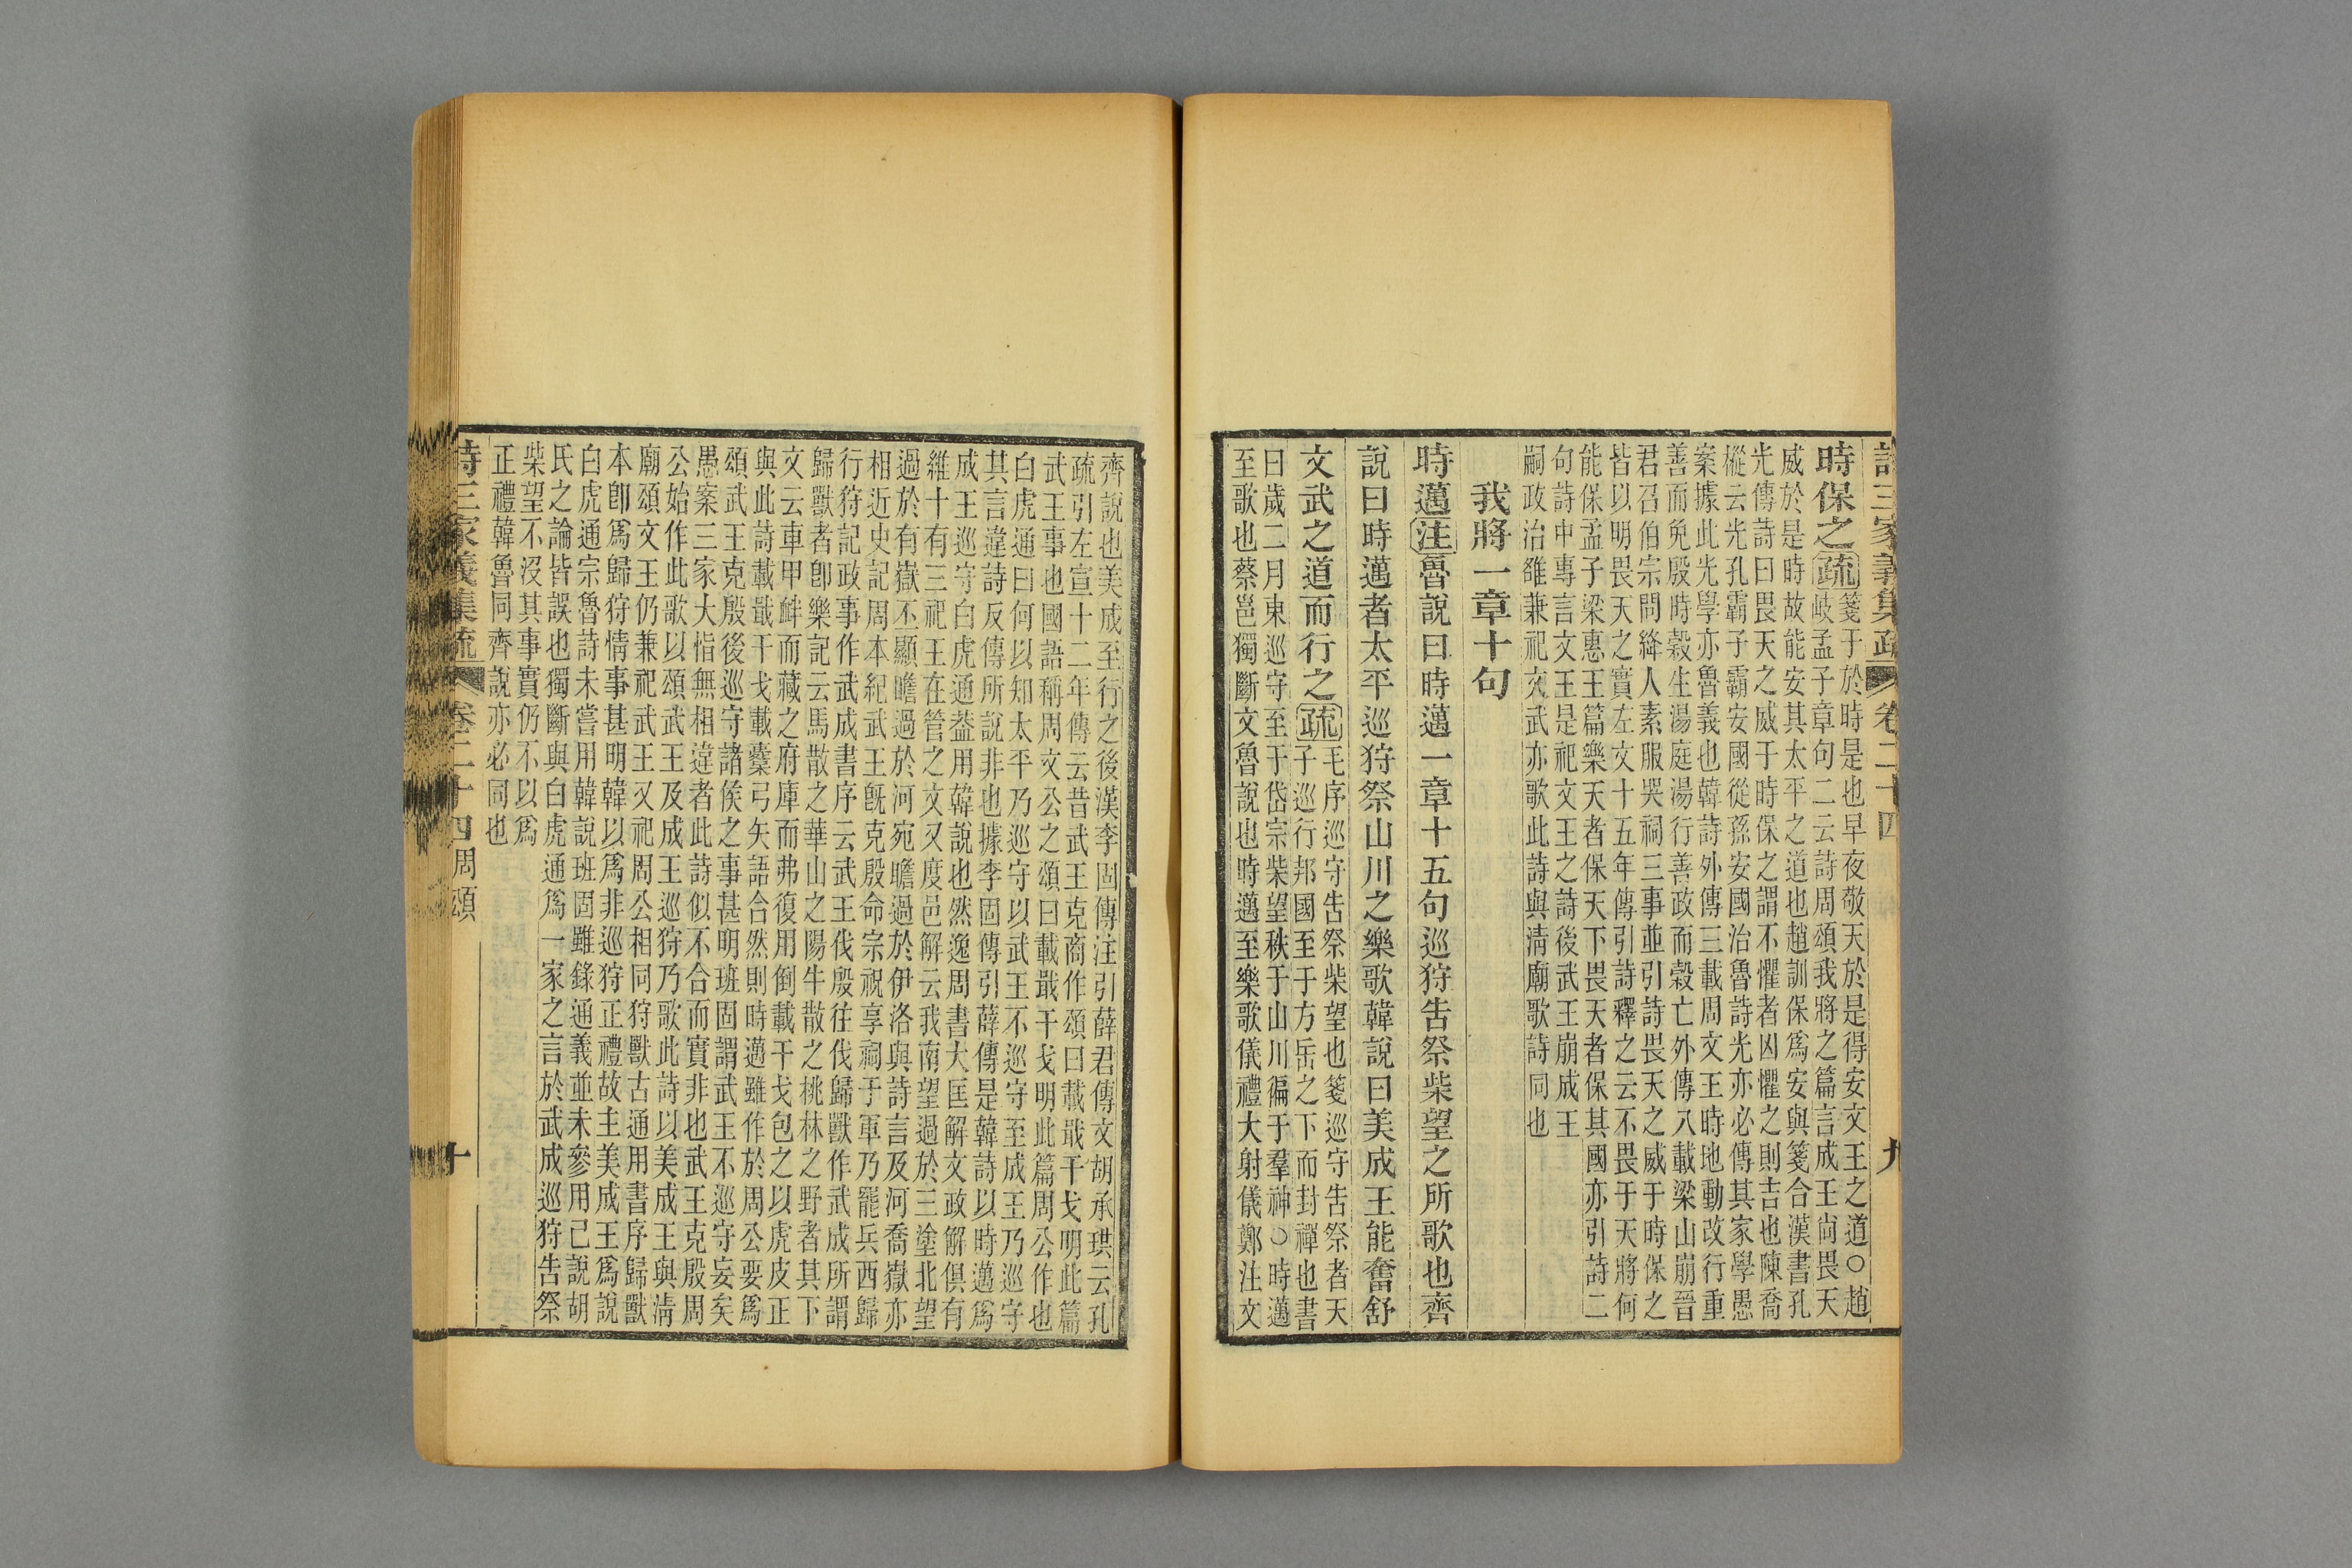 詩三家義集疏 卷二十四 九
時保之疏箋于於時是也早夜敬天於是得安文王之道○趙
岐孟子章句二云詩周頌我將之篇言成王尚畏天
威於是時故能安其太平之道也趙訓保爲安與箋合漢書孔
光傳詩曰畏天之威于時保之謂不懼者凶懼之則吉也陳喬
樅云光孔霸子霸安國從孫安國治魯詩光亦必傳其家學愚
案據此光學亦魯義也韓詩外傳三載周文王時地動改行重
善而免殷時榖生湯庭湯行善政而榖亡外傳八載梁山崩晉
君召伯宗問絳人素服哭祠三事並引詩畏天之威于時保之
皆以明畏天之實左文十五年傳引詩釋之云不畏于天將何
能保孟子梁惠王篇樂天者保天下畏天者保其國亦引詩二
句詩申專言文王是祀文王之詩後武王崩成王
嗣政治雒兼祀文武亦歌此詩與淸廟歌詩同也
我將一章十句
時邁注魯說曰時邁一章十五句巡狩告祭柴望之所歌也齊
說曰時邁者太平巡狩祭山川之樂歌韓說曰美成王能奮舒
文武之道而行之疏毛序巡守告祭柴望也箋巡守告祭者天
子巡行邦國至于方岳之下而封禪也書
曰歲二月東巡守至于岱宗柴望秩于山川徧于羣神○時邁
至歌也蔡邕獨斷文魯說也時邁至樂歌儀禮大射儀鄭注文
齊說也美成至行之後漢李固傳注引薛君傳文胡承珙云孔
疏引左宣十二年傳云昔武王克商作頌曰載戢干戈明此篇
武王事也國語稱周文公之頌曰載戢干戈明此篇周公作也
白虎通曰何以知太平乃巡守以武王不巡守至成王乃巡守
其言違詩反傳所說非也據李固傳引薛傳是韓詩以時邁爲
成王巡守白虎通葢用韓說也然逸周書大匡解文政解俱有
維十有三祀王在管之文又度邑解云我南望過於三塗北望
過於有嶽丕顯瞻過於河宛瞻過於伊洛與詩言及河喬嶽亦
相近史記周本紀武王旣克殷命宗祝享祠于軍乃罷兵西歸
行狩記政事作武成書序云武王伐殷往伐歸獸作武成所謂
歸獸者卽樂記云馬散之華山之陽牛散之桃林之野者其下
文云車甲衅而藏之府庫而弗復用倒載干戈包之以虎皮正
與此詩載戢干戈載櫜弓矢語合然則時邁雖作於周公要爲
頌武王克殷後巡守諸侯之事甚明班固謂武王不巡守妄矣
愚案三家大恉無相違者此詩似不合而實非也武王克殷周
公始作此歌以頌武王及成王巡狩乃歌此詩以美成王與淸
廟頌文王仍兼祀武王又祀周公相同狩獸古通用書序歸獸
本卽爲歸狩情事甚明韓以爲非巡狩正禮故主美成王爲說
白虎通宗魯詩未嘗用韓說班固雖錄通義並未參用己說胡
氏之論皆誤也獨斷與白虎通爲一家之言於武成巡狩告祭
柴望不沒其事實仍不以爲
正禮韓魯同齊說亦必同也
詩三家義集疏 卷二十四周頌 十